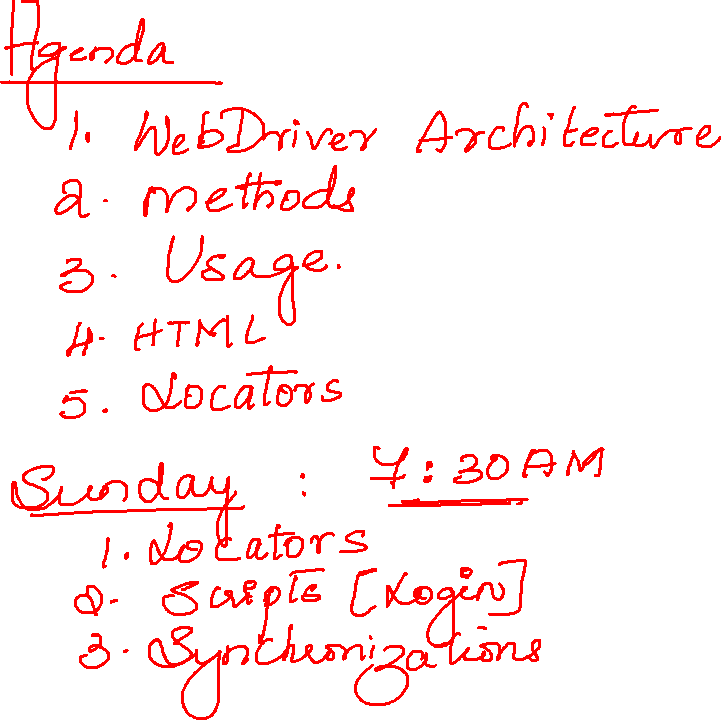 Agenda
1. WebDriver Architecture
2. methods
3. Usage.
4. HTML
5. Locators
Sunday : 7:30AM
1. Locators
2. Scripts [Login]
3. Synchronizations